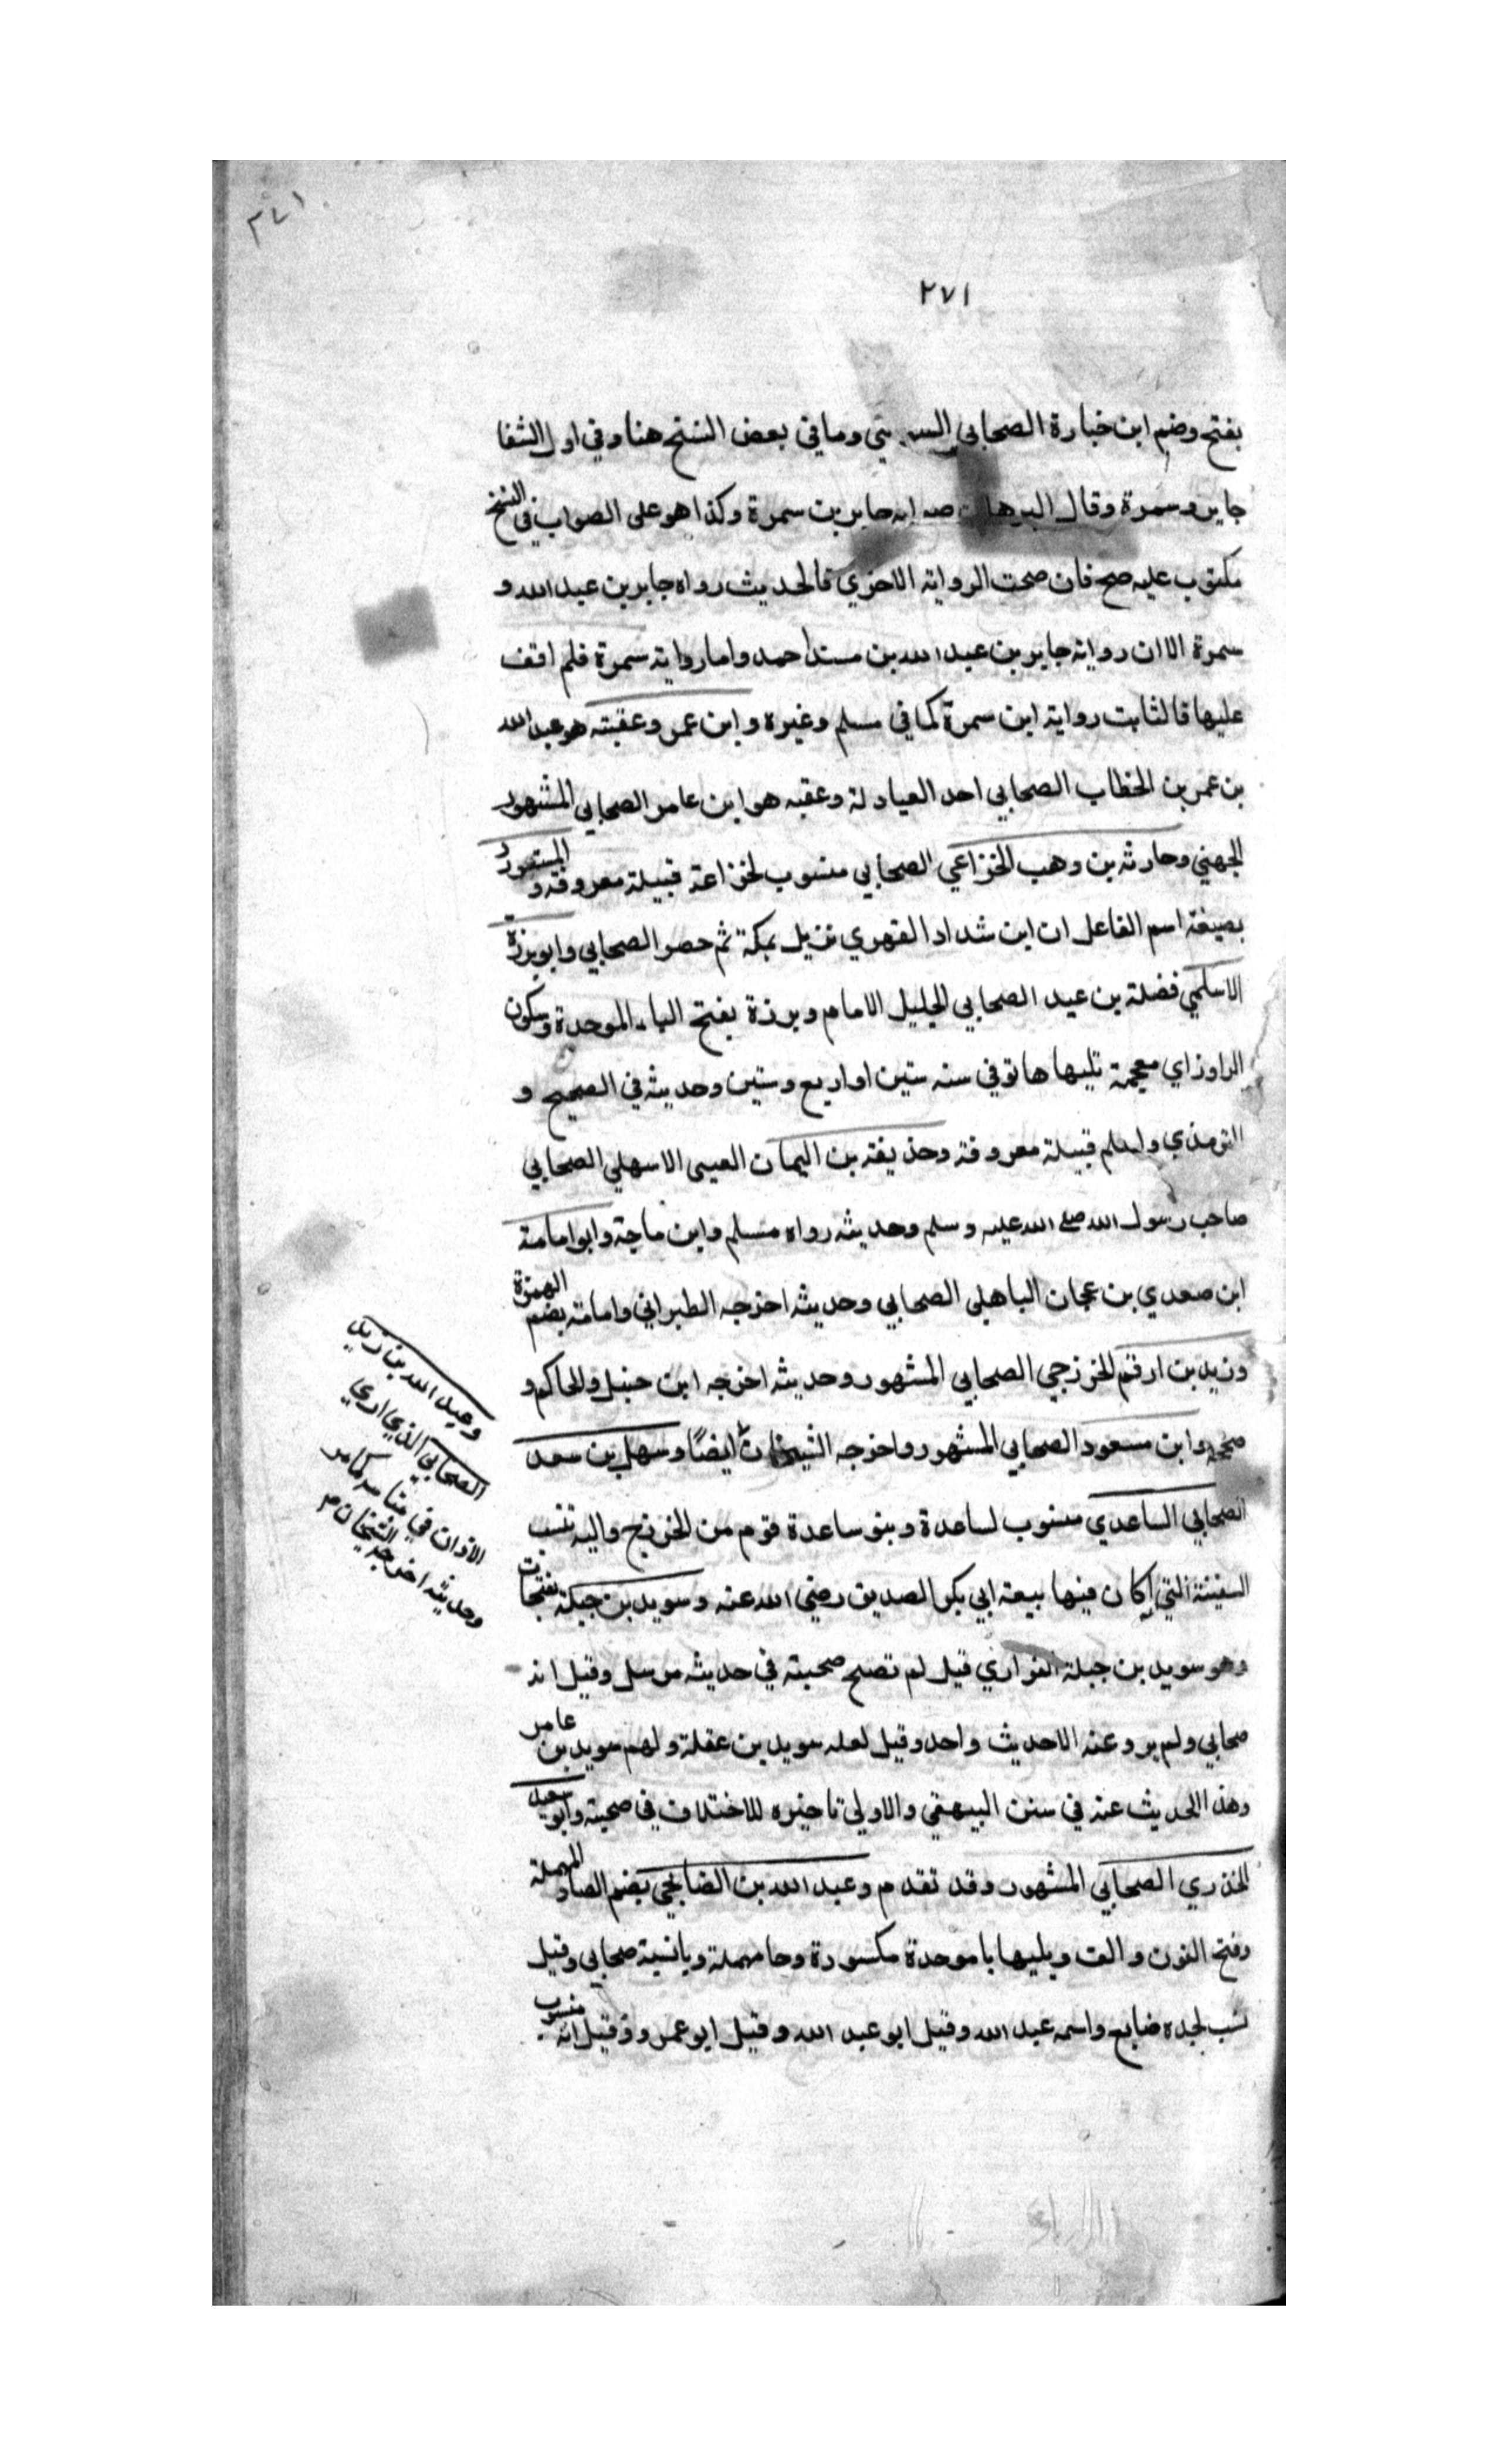 ٢٧١
٢٧١
بفتح وضم ابن خبارة الصحابي وما في بعض النسخ هنا وفي اول الشفا
جابر وسمرة وقال البرهان صوابه جابر بن سمرة وكذا هو على الصواب في النسخ
مكتوب عليه صح فان صحت الرواية الاخرى فالحديث رواه جابر بن عبد الله و
سمرة الا ان رواية جابر بن عبد الله بن مسند احمد واما رواية سمرة فلم اقف
عليها فالثابت رواية ابن سمرة كما في مسلم وغيره وابن عمر وعقبته هو عبد الله
بن عمر بن الخطاب الصحابي احد العبادلة وعقبه هو ابن عامر الصحابي المشهور
الجهني وحارثه بن وهب الخزاعي الصحابي منسوب لخزاعة قبيلة معروفة والمستورد
بصيغة اسم الفاعل ان ابن شداد الفهري نزيل بمكة ثم حصر الصحابي وابو برزة
الاسلمي فضلة بن عبيد الصحابي الجليل الامام وبرزة بفتح الباء الموحدة وسكون
الراوزاي معجمة تليها ها توفي سنه ستين او اربع وستين وحديثه في الصحيح و
الترمذي واسلم قبيلة معروفة وحذيفة بن اليمان العبسى الاسهلي الصحابي
صاحب رسول الله صلى الله عليه وسلم وحديثه رواه مسلم وابن ماجة وابو امامة
ابن صعدي بن عجان الباهلى الصحابي وحديثه اخرجه الطبراني وامامة بضم الهمزة
وزيد بن ارقم الخزرجي الصحابي المشهور وحديثه اخرجه ابن حنبل والحاكم و
صححه وابن مسعود الصحابي المشهور واخرجه الشيخان ايضًا وسهل بن سعد
الصحابي الساعدي منسوب لساعدة وبنو ساعدة قوم من الخزرج واليه تنسب
السفيفة التي كان فيها بيعة ابي بكر الصديق رضي الله عنه وسويد بن جبلة بفتحات
وهو سويد بن جبلة الفزاري قيل لم تصح صحبته في حديثه مرسل وقيل انه
صحابي ولم يرو عنه الا حديث واحد وقيل لعله سويد بن عقلة ولهم سويد بن عامر
وهذا الحديث عنه في سنن البيهقي والاولى تاخيره للاختلاف في صحبته وابو سعيد
الخذري الصحابي المشهور وقد تقدم وعبد الله بن الصنابحي بضم الصاد المهملة
وفتح النون والف ويليها با موحدة مكسورة وحا مهملة ويا نسبة صحابي وقيل
نسب لجده صنابح واسمه عبد الله وقيل ابو عبد الله وقيل ابو عمرو وقيل انه منسوب
وعبد الله بن زيد
الصحابي الذي اري
الاذان في منامه كما مر
وحديثه اخرجه الشيخان م